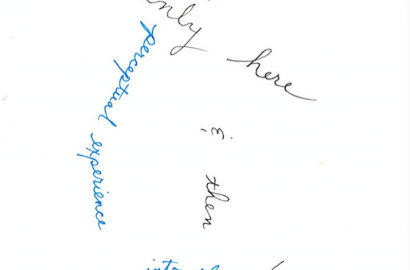 only here
& then
perceptual experience
into